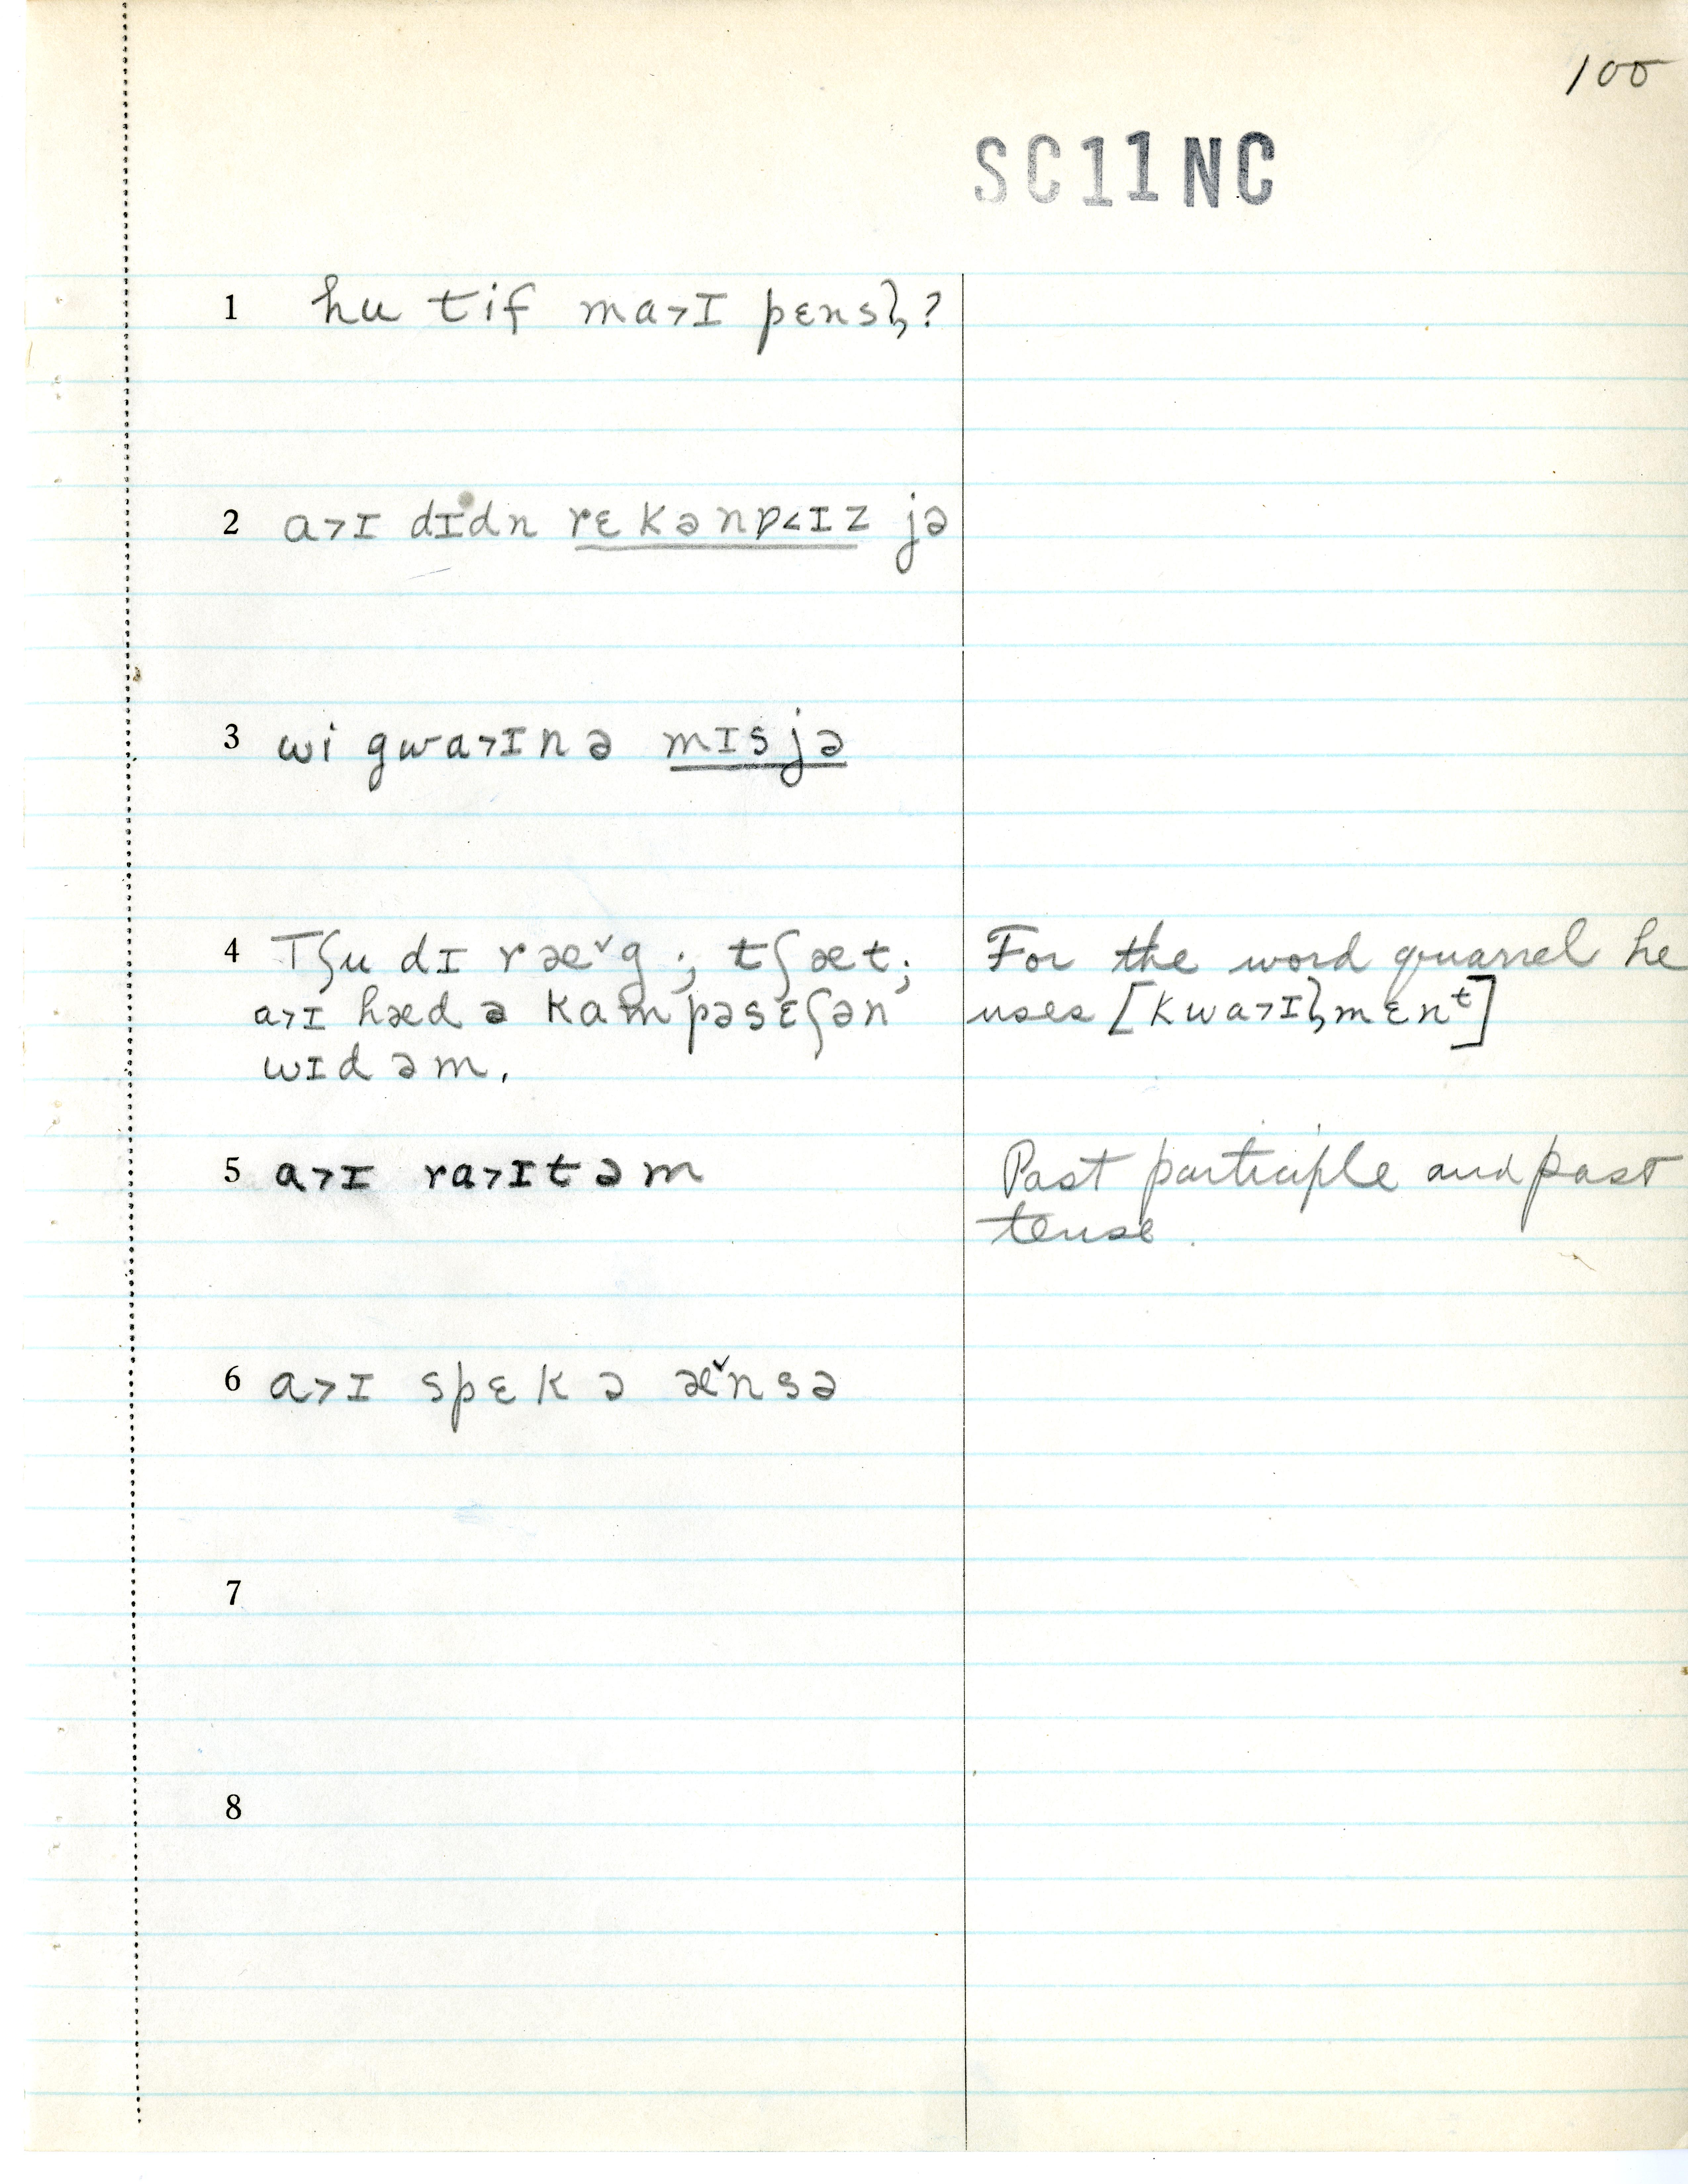 100
SC11NC
1 hu tif ma>ɪ pɛnsɫ̩?
2 a>ɪ dɪdn rɛkənɒ<ɪz jə
3 wi gwa>ɪnə mɪsjə
4 Tʃu dɪ ræ˅g; tʃæt; For the word quarrel he
a>ɪ hæd ə kampəsɛʃən uses [kwa>ɪɫ̩mɛnᵗ]
wɪdəm.
5 a>ɪ ra>ɪtəm Past participle and past
tense.
6 a>ɪ spɛk ə æ˅nsə
7
8